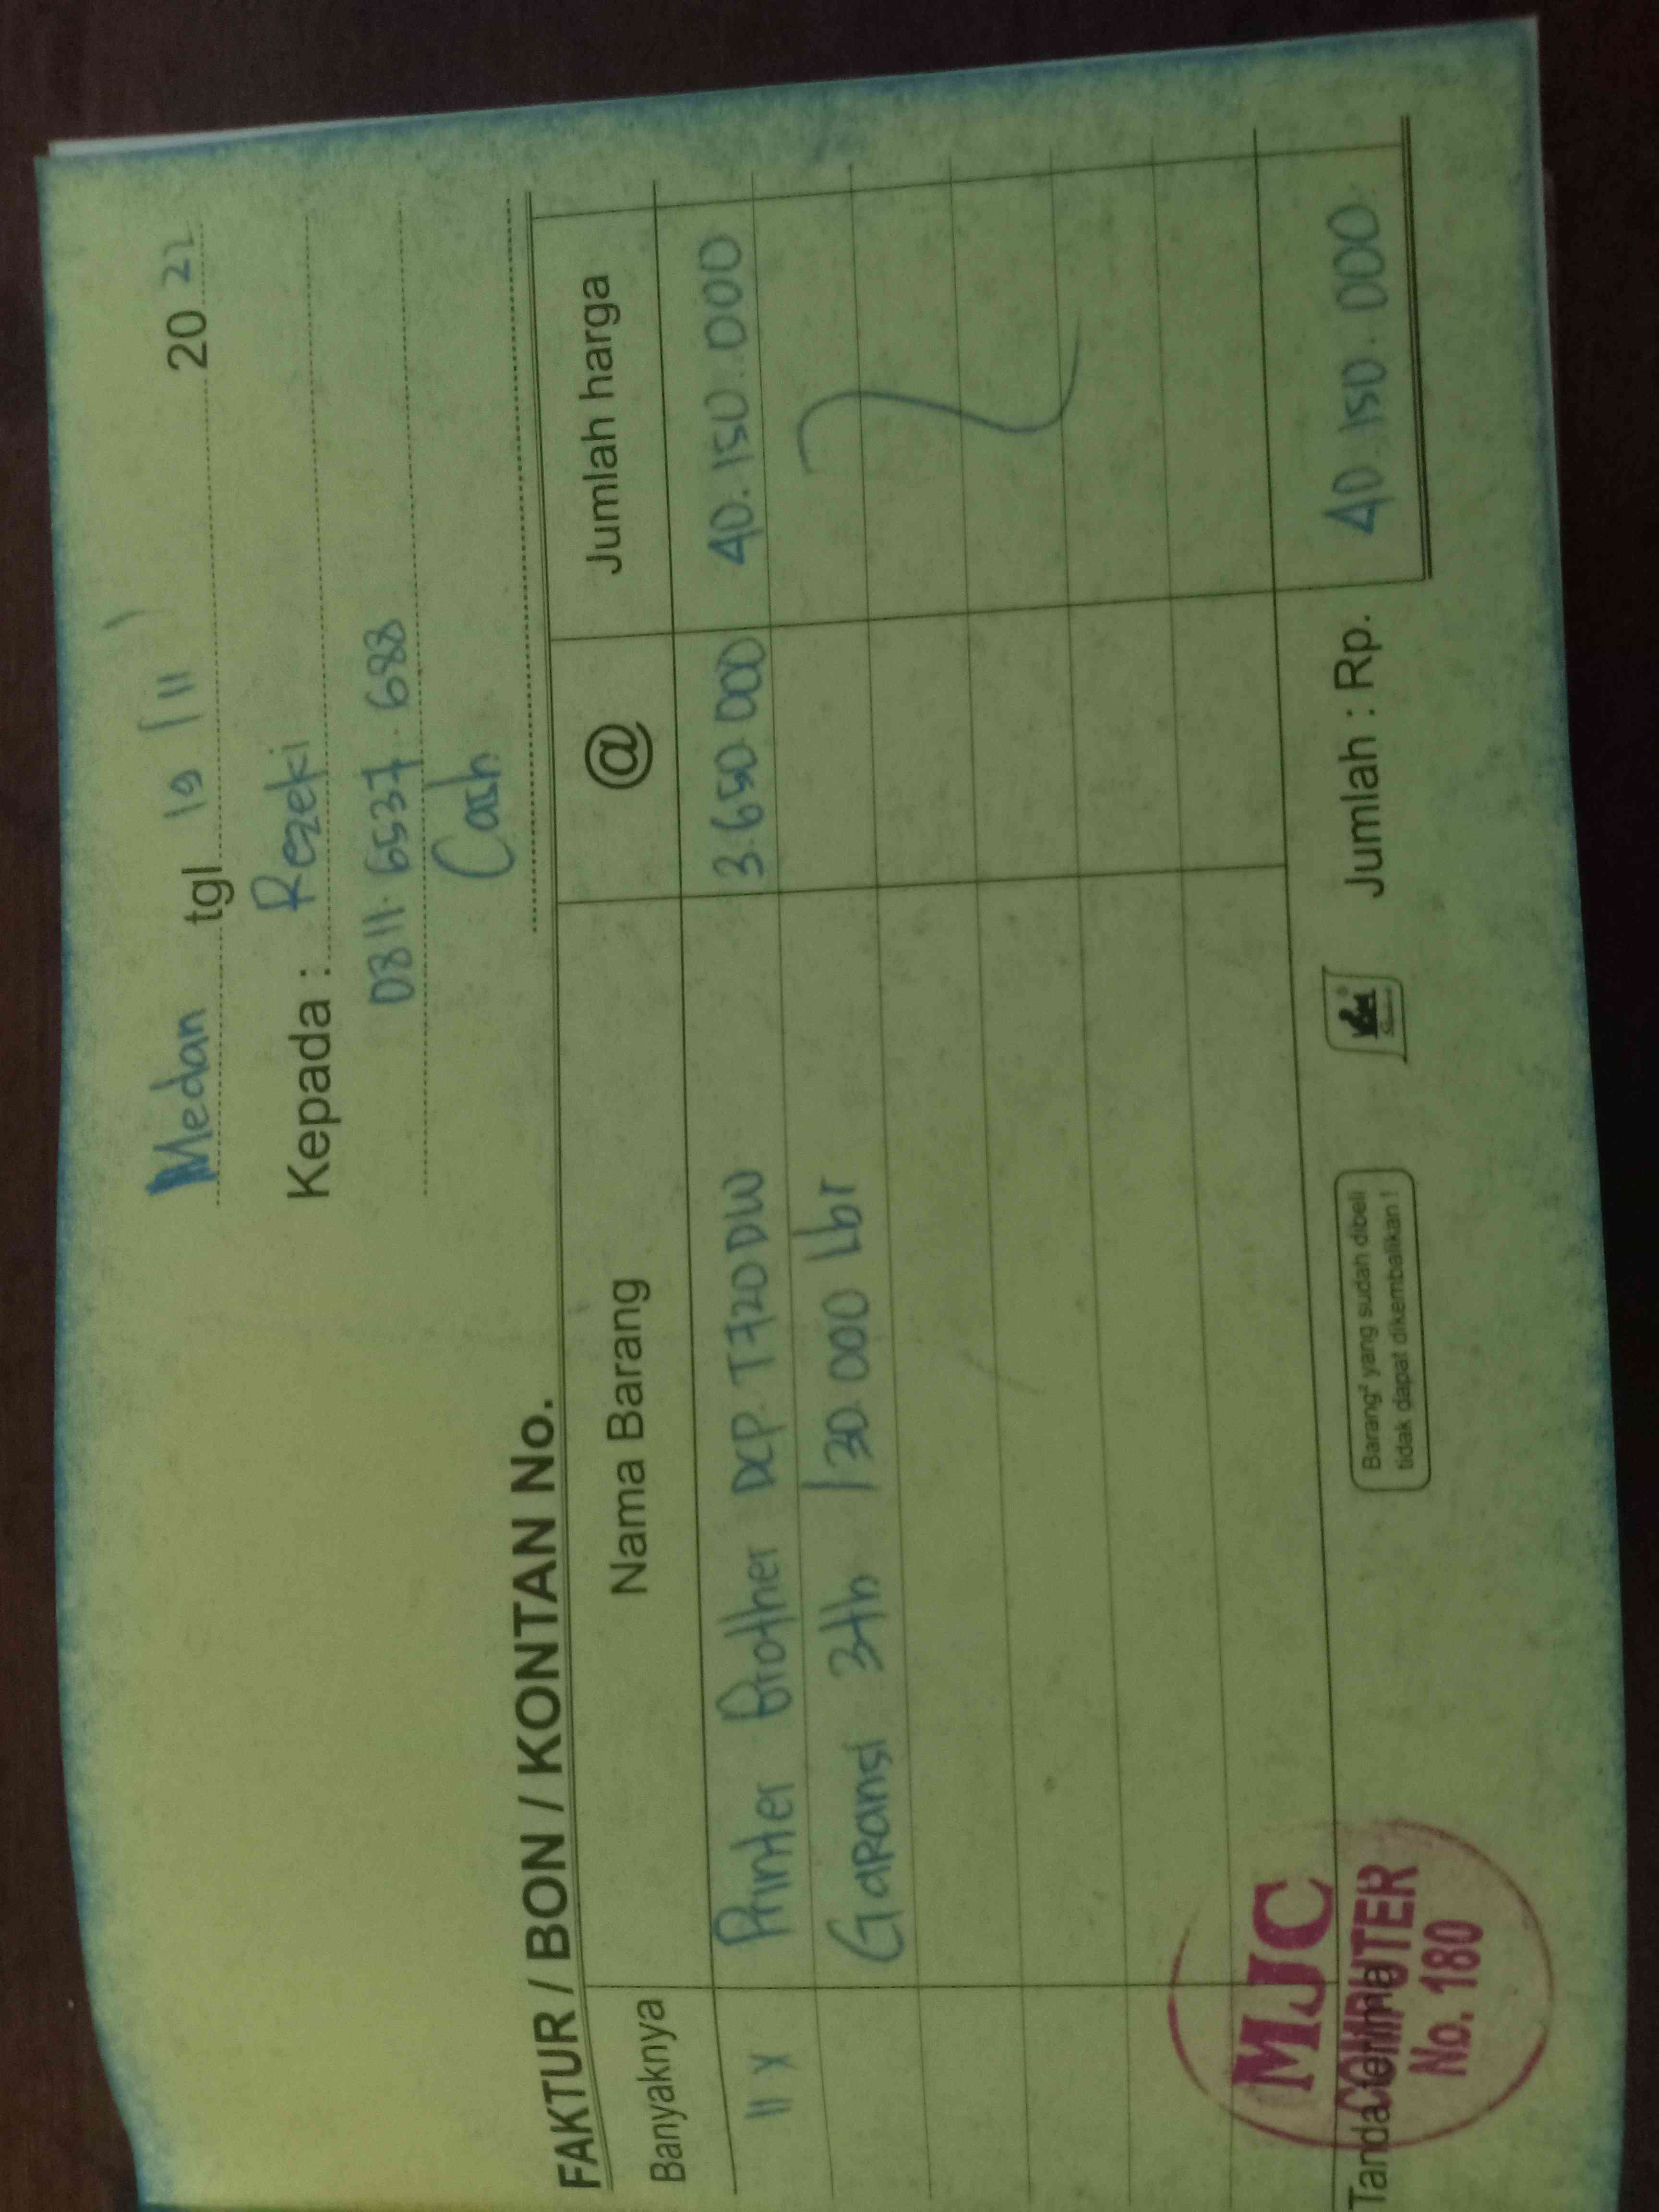 Medan tgl 19/11 20 22
Kepada : Rezeki
0811.6537.688
Cash
FAKTUR / BON / KONTAN No.
Banyaknya Nama Barang @ Jumlah harga
11 x Printer Brother DCP T720DW 3.650.000 40.150.000
Garansi 3th / 30.000 Lbr
Tanda terima
MJC
COMPUTER
No. 180
Barang² yang sudah dibeli
tidak dapat dikembalikan !
Jumlah : Rp. 40.150.000